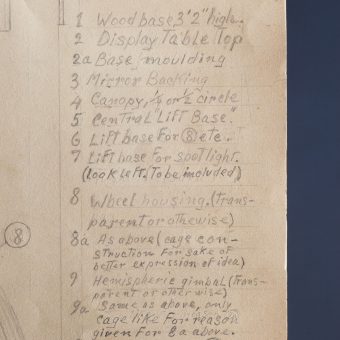 1 Wood base, 3'2" high.
2 Display Table Top
2a Base moulding
3 Mirror Backing
4 Canopy, or 1/2 circle
5 Central "Lift Base."
6 Lift base For ⑧ etc.
7 Lift base for spotlight.
(Look left. To be included)
8 Wheel housing. (trans-
parent or othewise)
8a As above (cage con-
struction for sake of
better expression of idea)
9 Hemispheric gimbal (trans-
parent or otherwise)
9a Same as above, only
cage like For reason
given For 8a above.
⑧